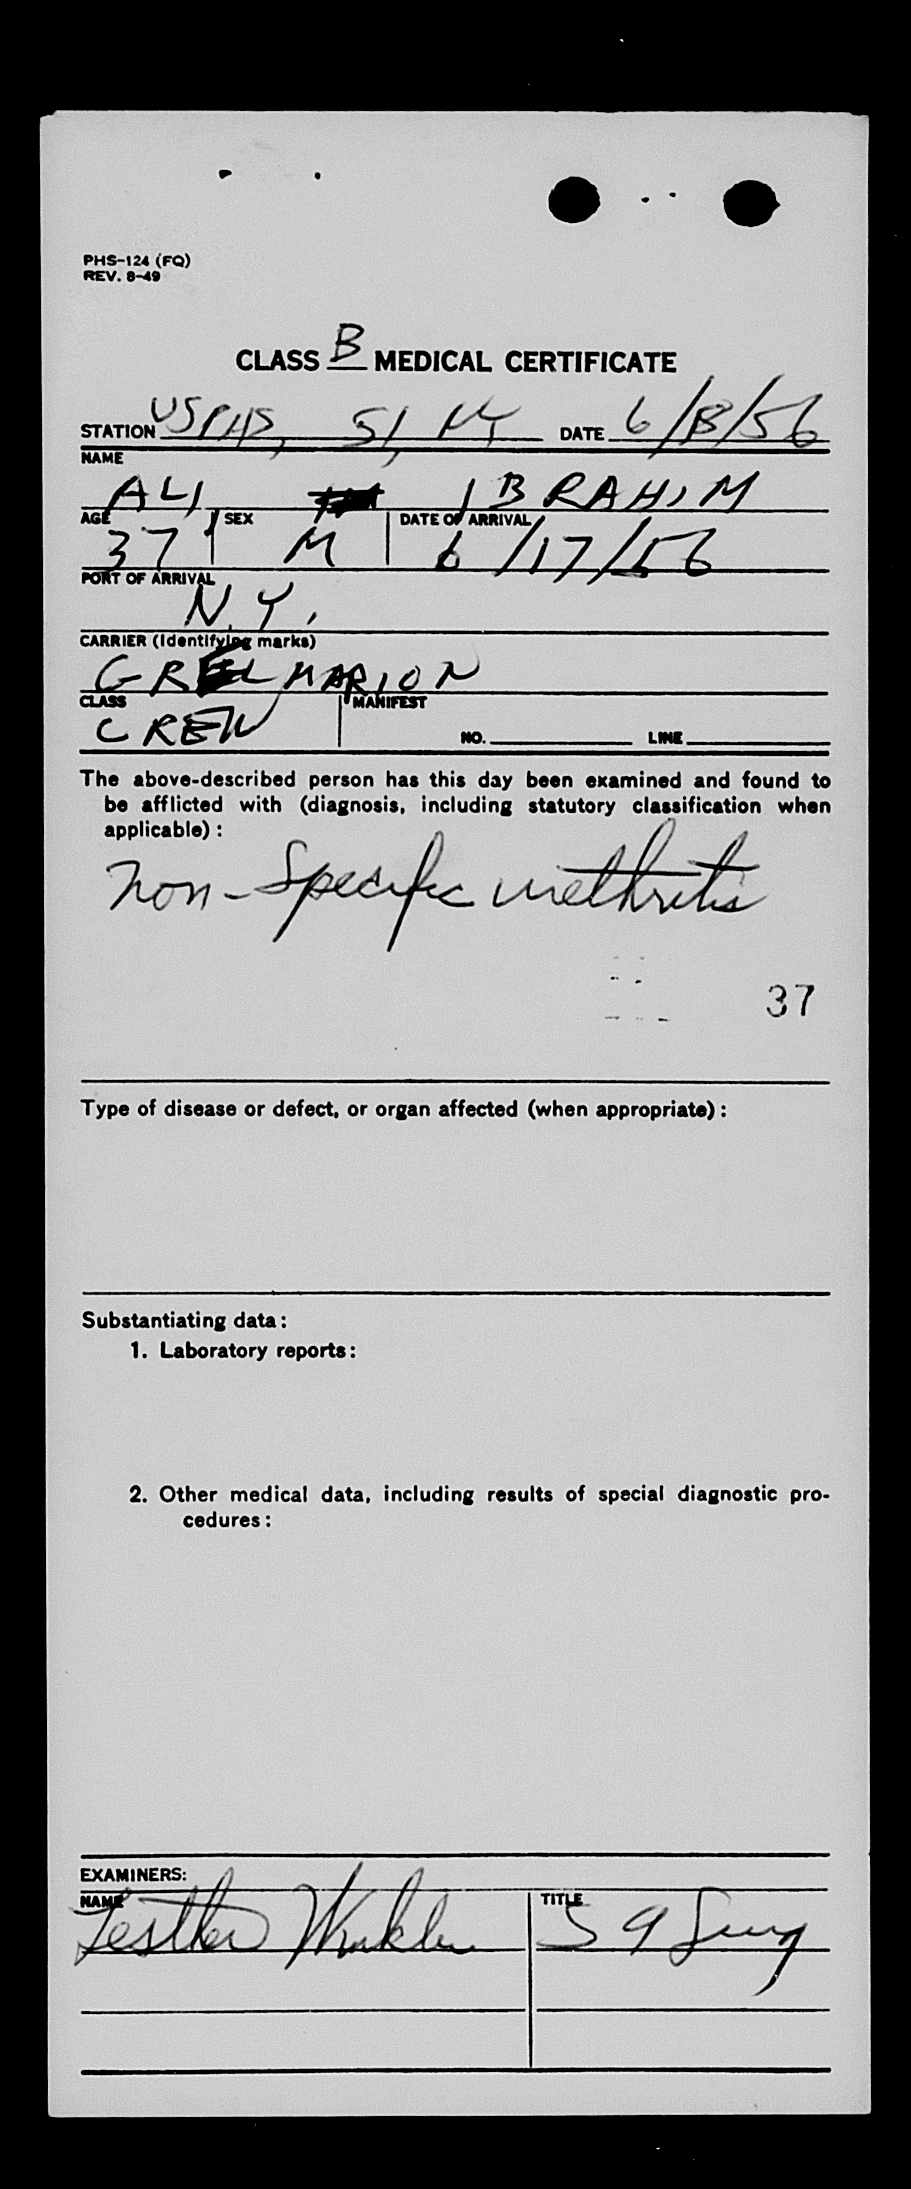 PHS-124 (FQ)
REV. 8-49
CLASS B MEDICAL CERTIFICATE
STATION USPHS, SI, NY DATE 6/18/56
NAME
ALI IBRAHIM
AGE SEX DATE OF ARRIVAL
37 M 6/17/56
PORT OF ARRIVAL
N.Y.
CARRIER (Identifying marks)
MARION
CLASS MANIFEST
CREW NO. LINE
The above-described person has this day been examined and found to
be afflicted with (diagnosis, including statutory classification when
applicable):
non-Specific urethritis
37
Type of disease or defect, or organ affected (when appropriate):
Substantiating data:
1. Laboratory reports:
2. Other medical data, including results of special diagnostic pro-
cedures:
EXAMINERS:
NAME TITLE